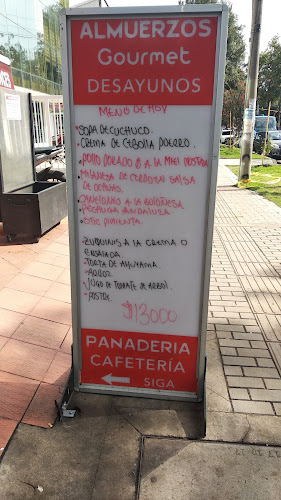 ALMUERZOS
Gourmet
DESAYUNOS
MENÚ DE HOY
SOPA DE CUCHUCO.
CREMA DE CEBOLLA PUERRO.
POLLO DORADO A LA MIEL MOSTAZA
MILANESA DE CERDO EN SALSA
DE CIRUELAS.
CANELONES A LA BOLOÑESA
PECHUGA ANDALUZA
BIFE PIMIENTA
ZUQUINIS A LA CREMA O
ENSALADA.
TORTA DE AHUYAMA.
-ARROZ.
-JUGO DE TOMATE DE ARBOL.
-POSTRE.
$13000
PANADERIA
CAFETERÍA
SIGA